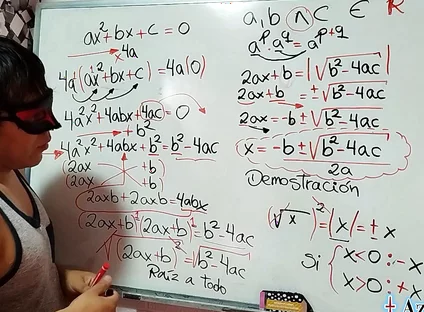 ax²+bx+c=0
x4a
4a(ax²+bx+c)=4a(0)
4a²x²+4abx+4ac=0
+b²
4a²x²+4abx+b²=b²-4ac
(2ax +b)
(2ax +b)
2axb+2axb=4abx
(2ax+b)¹(2ax+b)¹=b²-4ac
√(2ax+b)²=√b²-4ac
Raíz a todo
a,b ∧ c ∈ R
aᵖ.a^q=a^p+q
2ax+b=|√b²-4ac|
2ax+b=±√b²-4ac
2ax=-b±√b²-4ac
x=-b±√b²-4ac
2a
Demostración
(√x)²=|x|=±x
Si { x<0:-x
x>0:+x
+Az